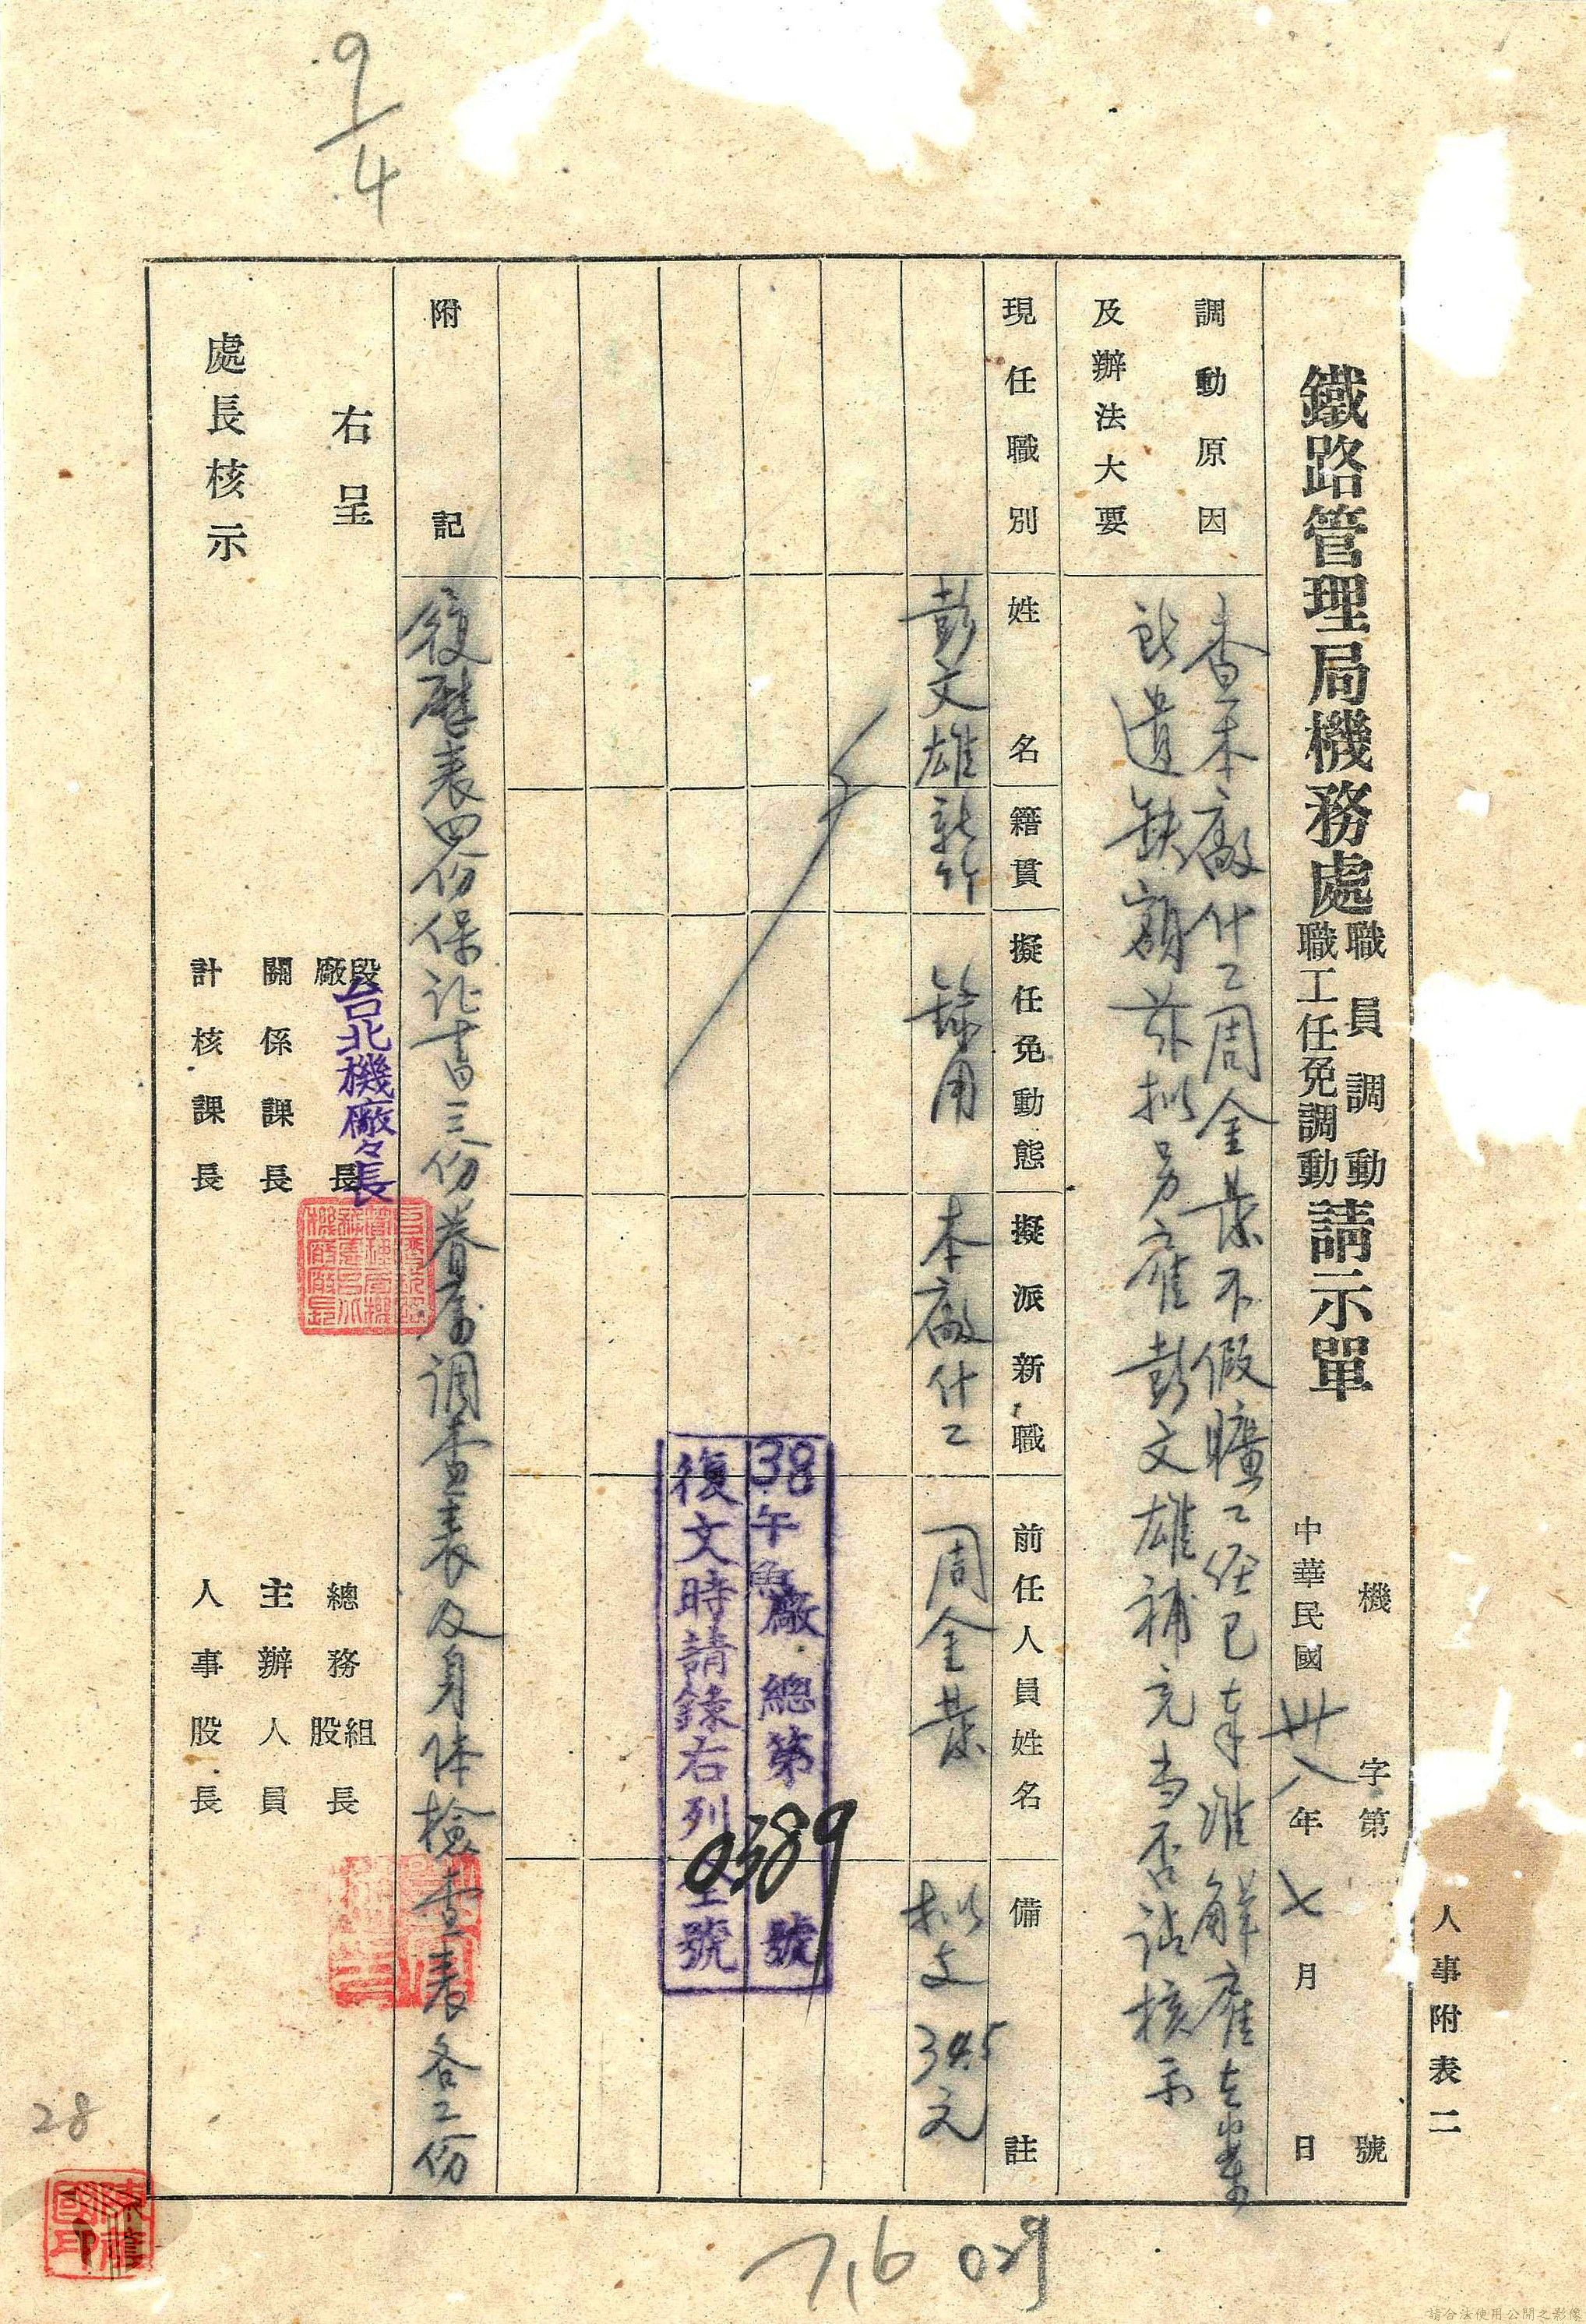 人事附表二
鐵路管理局機務處職員調動職工任免調動請示單
機字第號
中華民國卅八年七月日
調動原因及辦法大要
查本廠什工周金葉不假曠工經已奉准解雇在案
所遺缺額茲擬另雇彭文雄補充當否請核示
現任職別
姓名
籍貫
擬任免動態
擬派新職
前任人員姓名
備註
彭文雄
新竹
錄用
本廠什工
周金葉
擬支345元
38午魚廠總第0389號
復文時請錄右列全號
附記
復歷表四份保证書三份眷屬調查表及身体檢查表各二份
右呈
處長核示
段廠長
台北機廠々長
關係課長
計核課長
總務組股長
主辦人員
人事股長
9/4
28
7,6 029
請合法使用公開之影像